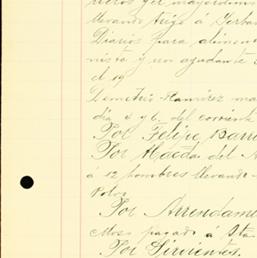 meros y el mayordomo
llevando trigo á Gerba
Diarios para alimen
nista y un ayudante
d 19
Demetrio Ramirez ma
dia 5 y 6. del corriente
Por Felipe Barr
Por Hacdas del A
á 12 hombres llevando
Potro.
Por Arrendame
Mozo pagado á Sta.
Por Sirvientes.